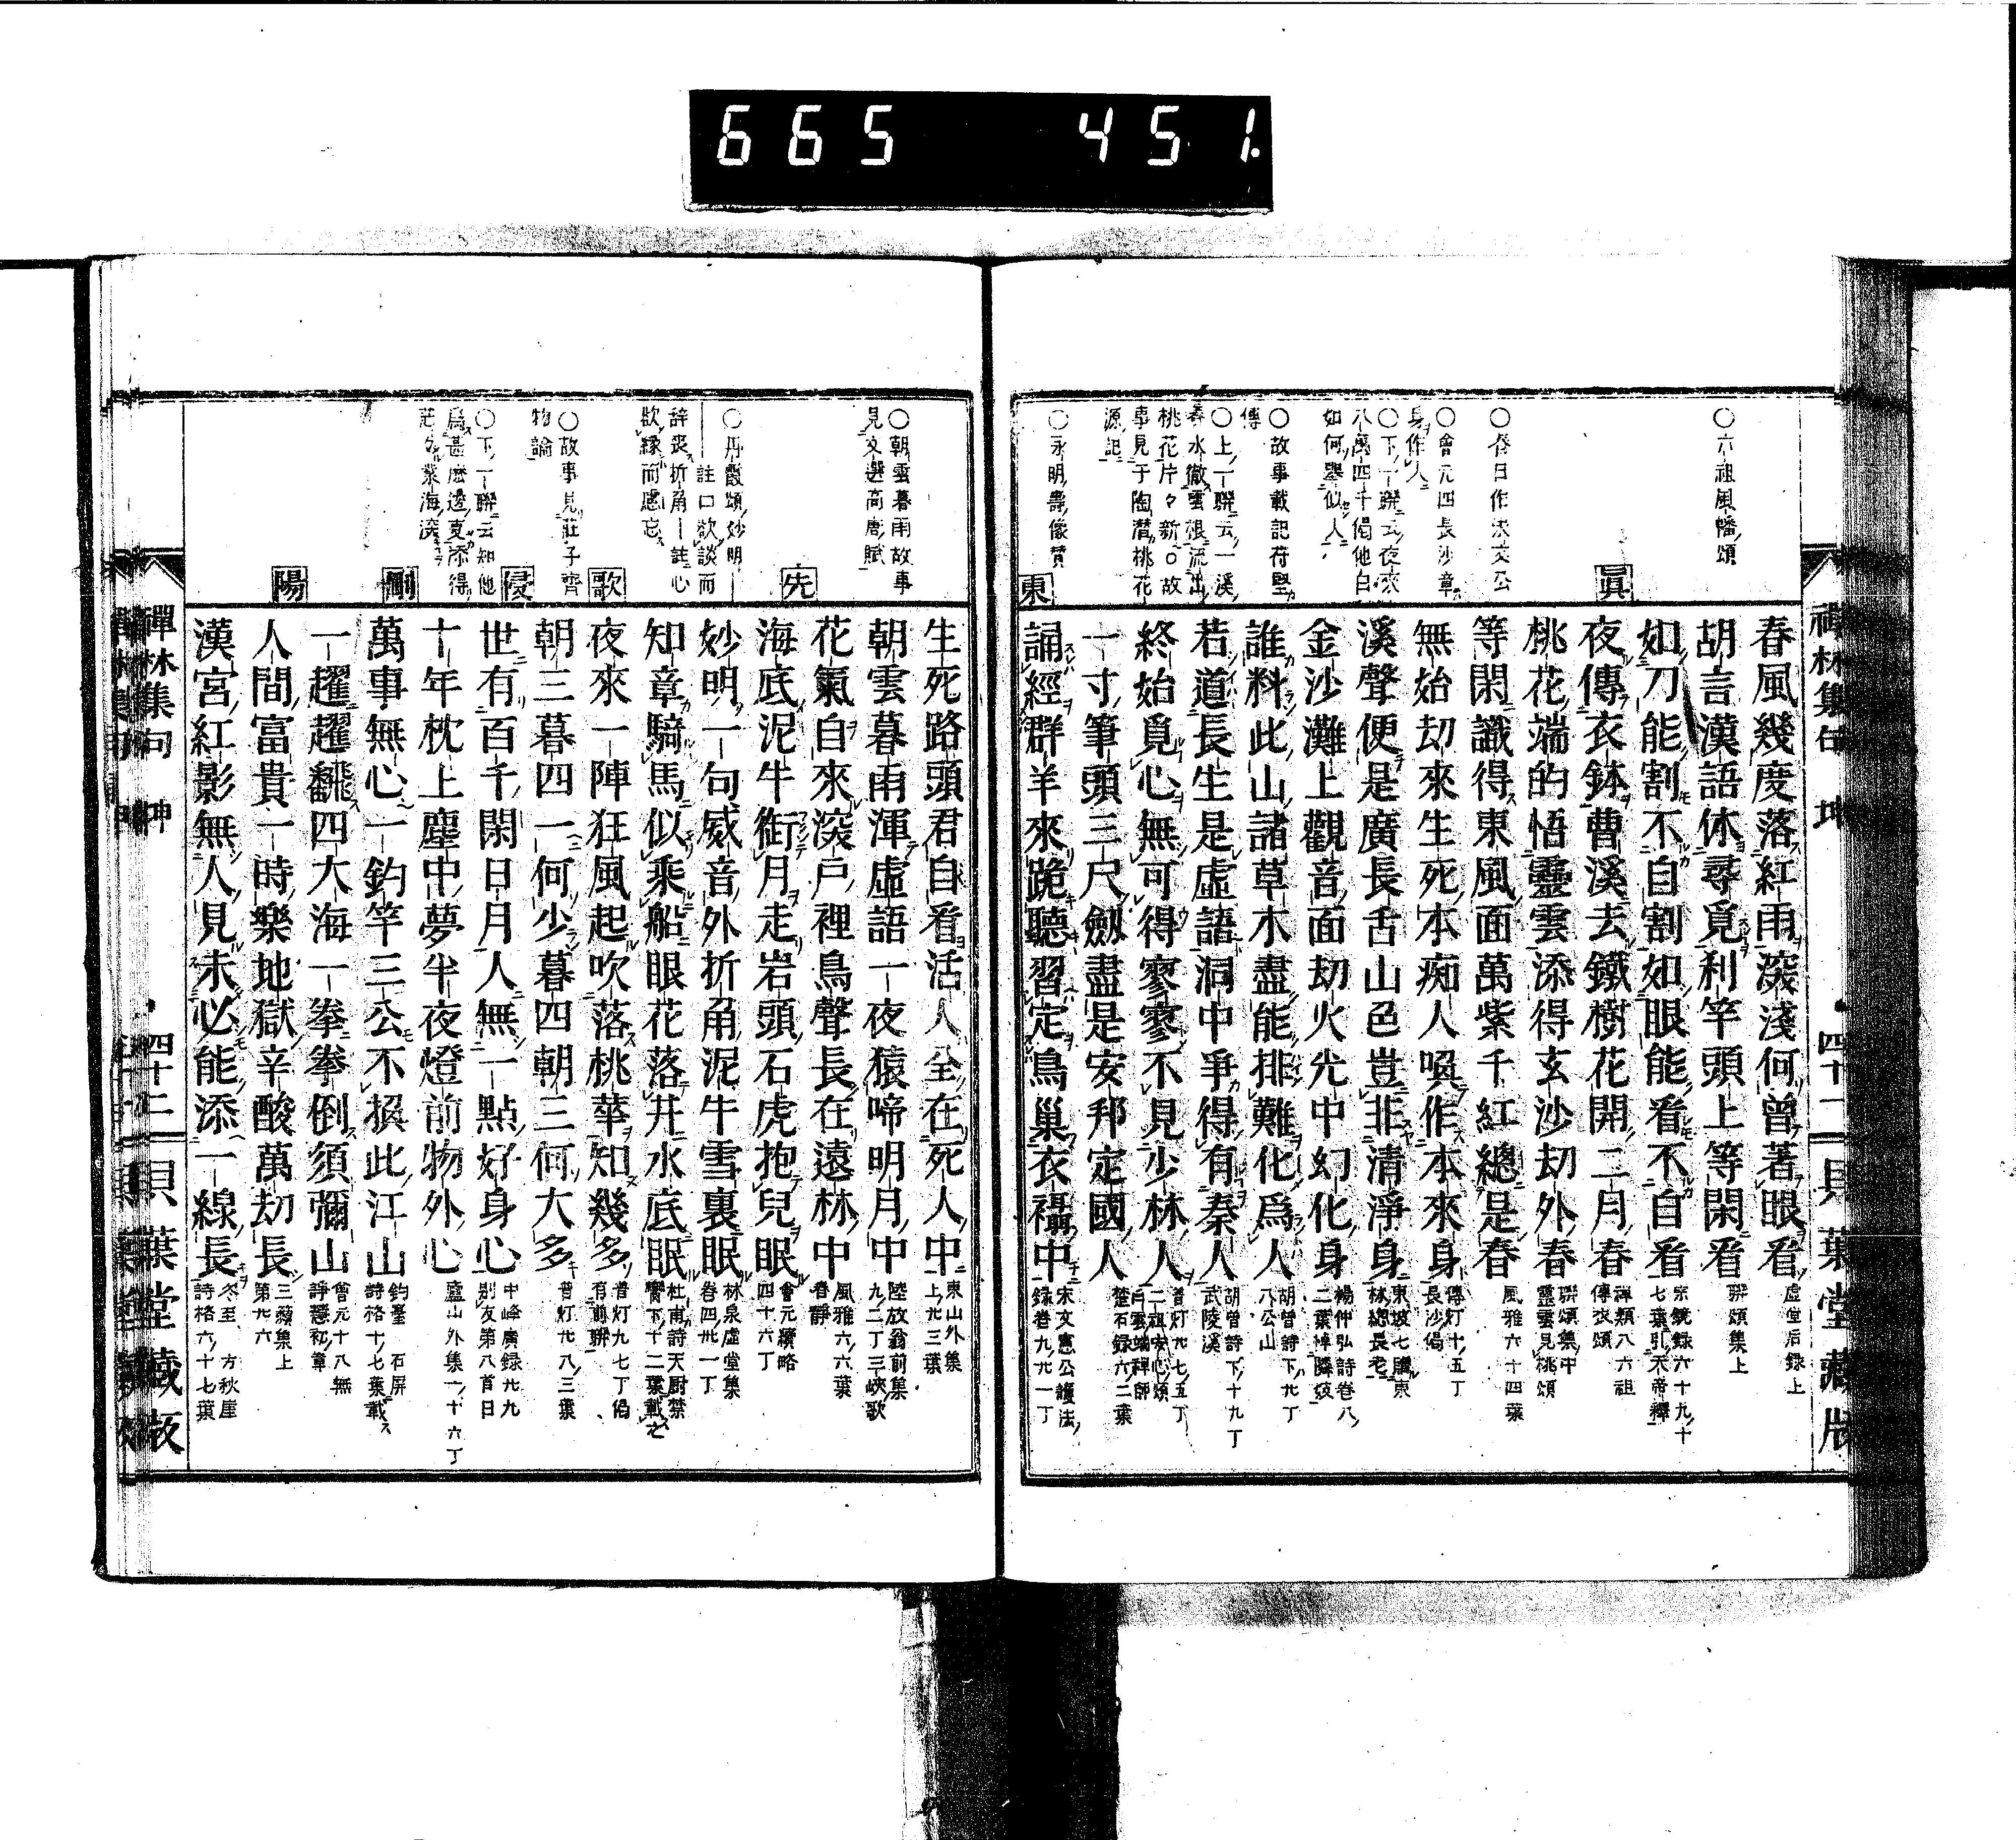 665 451.
禪林集句 坤
四十二
貝葉堂藏版
○六祖風幡頌
眞
○春日作朱文公
○會元四長沙章
身作人
○下一聯云夜來
八萬四千偈他日
如何舉似人
○故事載記苻堅
傳
○上一聯云一溪
春水徹雲根流出
桃花片々新○故
事見于陶潜桃花
源記
○永明壽像賛
東
春風幾度落紅雨深淺何曾著眼看
虛堂后録上
胡言漢語休尋覓利竿頭上等閑看
聨頌集上
如刀能割不自割如眼能看不自看
宗鏡録六十九十
七葉引天帝釋
夜傳衣鉢曹溪去鐵樹花開二月春
禪類八六祖
傳衣頌
桃花端的悟靈雲添得玄沙劫外春
聨頌集中
靈雲見桃頌
等閑識得東風面萬紫千紅總是春
風雅六十四葉
無始劫來生死本痴人喚作本來身
傳灯十五丁
長沙偈
溪聲便是廣長舌山色豈非清淨身
東坡七贈東
林總長老
金沙灘上觀音面劫火光中幻化身
楊仲弘詩卷八
二葉悼隣妓
誰料此山諸草木盡能排難化爲人
胡曾詩下九丁
八公山
若道長生是虛語洞中爭得有秦人
胡曾詩下十九丁
武陵溪
終始覓心無可得寥寥不見少林人
普灯廿七五丁
二祖安心頌
白雲端禪師
一寸筆頭三尺劔盡是安邦定國人
楚石録六二葉
誦經群羊來跪聽習定鳥巢衣襵中
宋文憲公護法
録卷九九一丁
○朝雲暮雨故事
見文選高唐賦
先
○丹霞頌妙明
註口欲談而
辞喪折角註心
欲縁而慮忘
歌
○故事見莊子齊
物論
侵
○下一聯云知他
爲甚麽邊更添得
茫々業海深
刪
陽
生死路頭君自看活人全在死人中
東山外集
上九三葉
朝雲暮雨渾虛語一夜猿啼明月中
陸放翁前集
九二丁三峽歌
花氣自來深戸裡鳥聲長在遠林中
風雅六六葉
春靜
海底泥牛銜月走岩頭石虎抱兒眠
會元續略
四十六丁
妙明一句威音外折角泥牛雪裏眠
林泉虛堂集
卷四卅一丁
知章騎馬似乘船眼花落井水底眠
杜甫詩天厨禁
臠下十二葉載之
夜來一陣狂風起吹落桃華知幾多
普灯九七丁偈
有前聨
朝三暮四一何少暮四朝三何大多
普灯廿八三葉
世有百千閑日月人無一點好身心
中峰廣録廿九
別友第八首日
十年枕上塵中夢半夜燈前物外心
廬山外集一十六丁
萬事無心一釣竿三公不換此江山
釣臺 石屏
詩格十七葉載
一趯趯飜四大海一拳拳倒須彌山
會元十八無
諍慧初章
人間富貴一時樂地獄辛酸萬劫長
三蘇集上
第九六
漢宮紅影無人見未必能添一線長
冬至 方秋崖
詩格六十七葉
禪林集句 坤
四十三
貝葉堂藏版